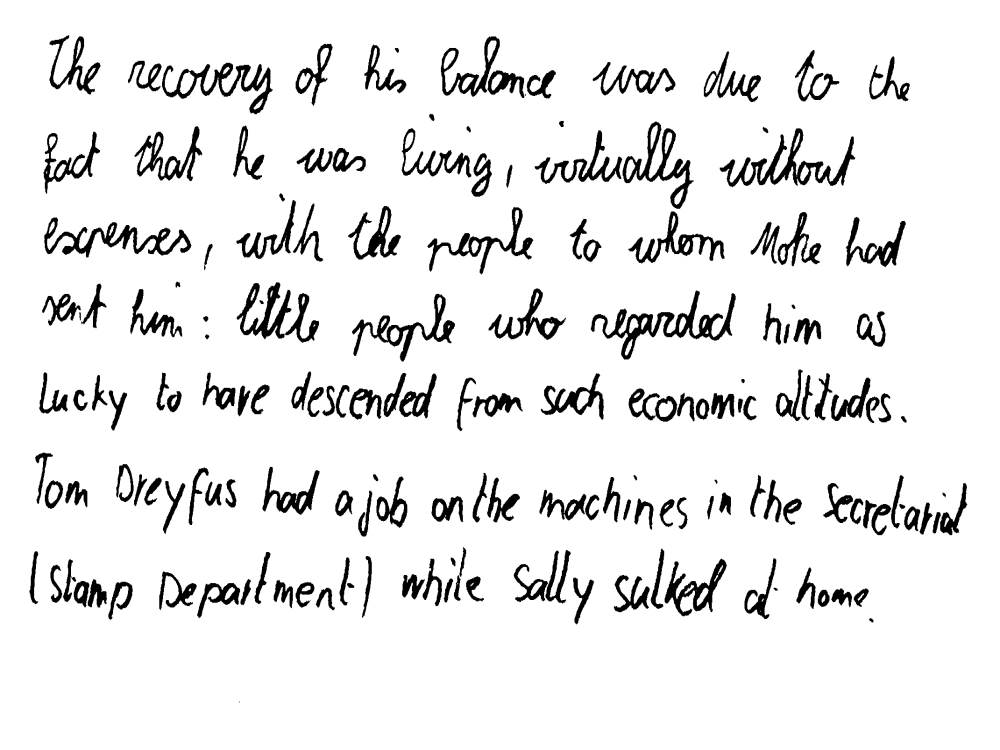 The recovery of his balance was due to the
fact that he was living, virtually without
expenses, with the people to whom Moke had
sent him: little people who regarded him as
lucky to have descended from such economic altitudes.
Tom Dreyfus had a job on the machines in the Secretariat
(Stamp Department) while Sally sulked at home.